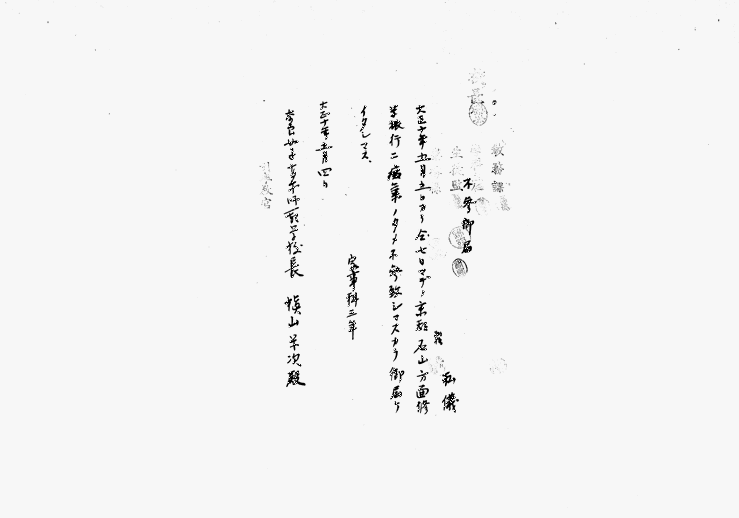 校長
教務課
不参御届
私儀
大正十年五月五日カラ仝七日マデ京都石山方面修
学旅行ニ病気ノタメ不参致シマスカラ御届ケ
イタシマス
家事科三年
大正十年五月四日
奈良女子高等師範学校長 槇山栄次殿